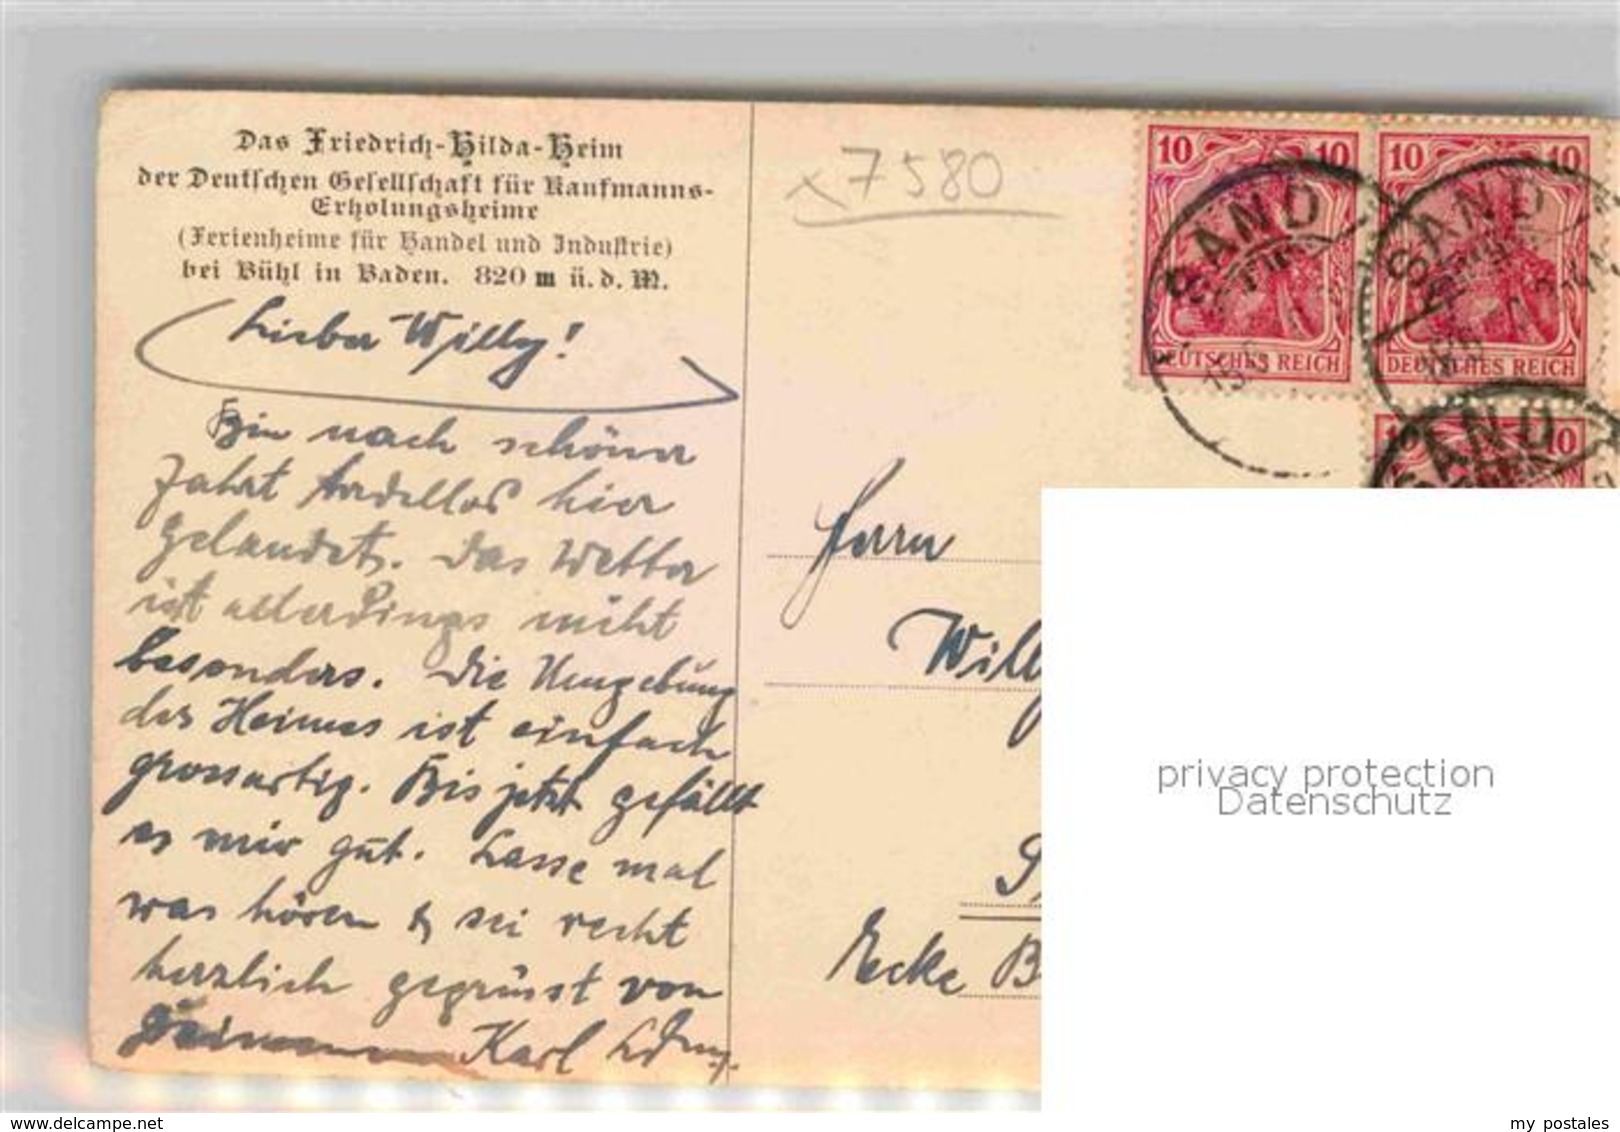 Das Friedrich-Hilda-Heim
der Deutschen Gesellschaft für Kaufmanns-
Erholungsheime
(Ferienheime für Handel und Industrie)
bei Bühl in Baden. 820 m ü. d. M.
Lieber Willy!
Bin nach schöner
Fahrt tadellos hier
gelandet. Das Wetter
ist allerdings nicht
besonders. Die Umgebung
des Heimes ist einfach
grossartig. Bis jetzt gefällt
es mir gut. Lasse mal
was hören & sei recht
herzlich gegrüsst von
Karl
x 7580
10 10
DEUTSCHES REICH
SAND
10 10
DEUTSCHES REICH
SAND
10
SAND
Herrn
Willy
Ecke B
privacy protection
Datenschutz
my postales